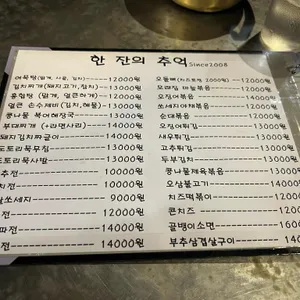 한 잔의 추억 Since2008
어묵탕(맵게, 사골, 김치)---12000원
김치찌개(돼지고기,참치)---13000원
홍합탕(맵게, 얼큰하게)---12000원
얼큰 손수제비(김치,해물)---13000원
콩나물 북어해장국---13000원
부대찌개 (+라면사리)---14000원
돼지김치짜글이---14000원
도토리묵무침---13000원
도토리묵사발---13000원
추전---12000원
치전---12000원
살쏘세지---9000원
전---12000원
파전---14000원
전---14000원
오돌뼈 (치즈토핑 2000원)---12000원
모래집 마늘볶음---12000원
오징어볶음---14000원
쏘세지야채볶음---12000원
순대볶음---12000원
오징어튀김---12000원
새우튀김---13000원
고추튀김---13000원
두부김치---13000원
콩나물제육볶음---13000원
오삼불고기---14000원
치즈떡볶이---12000원
콘치즈---12000
골뱅이소면---16000
부추삼겹살구이---14000